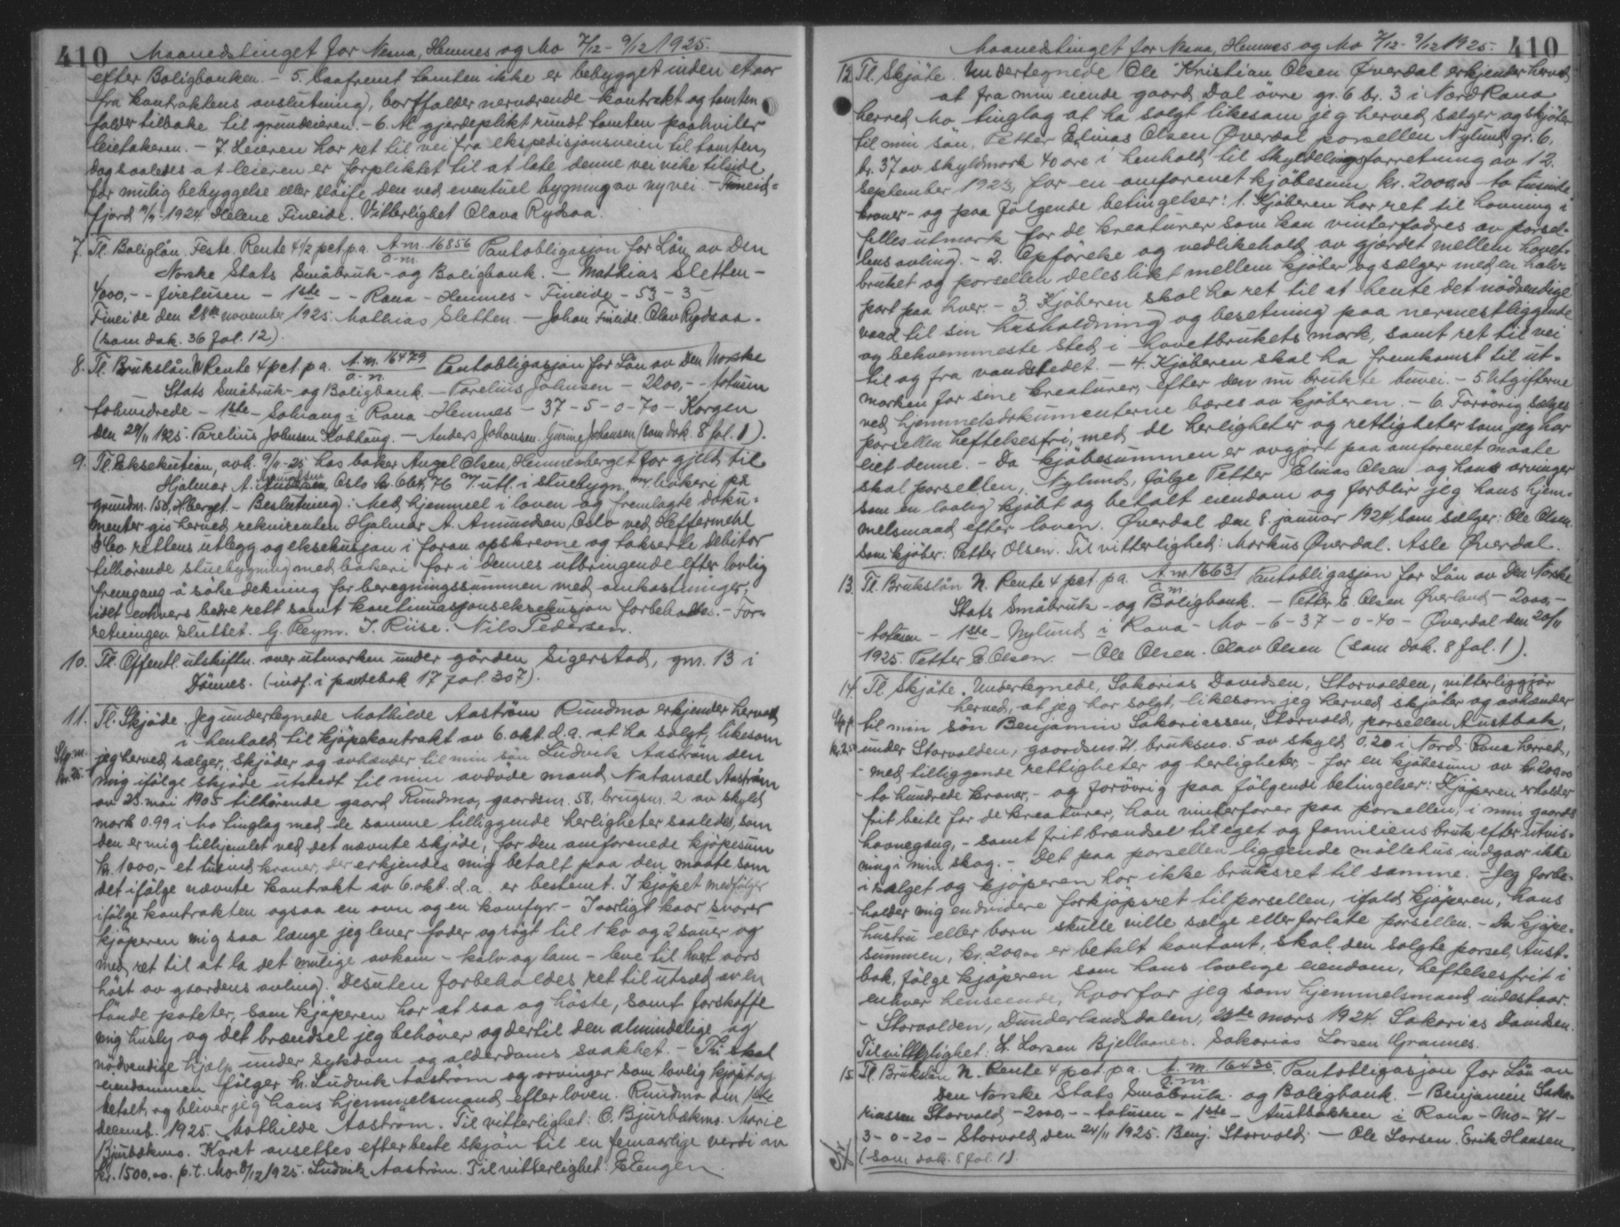 410 Maanedstinget for Nesna, Hemnes og Mo 7/12 - 9/12 1925.
efter Boligbanken. - 5. Saafremt tomten ikke er bebygget inden et aar
fra kontraktens avslutning, bortfalder nærværende kontrakt og tomten
falder tilbake til grundeieren. - 6. Al gjerdeplikt rundt tomten paahviler
leietakeren. - 7. Leieren har ret til vei fra ekspedisjonsveien til tomten,
dog saaledes at leieren er forpliktet til at late denne vei vike tilside
for mulig bebyggelse eller sløife den ved eventuel bygning av ny vei. - Fineid-
fjord 1924 Helene Fineide. Vitterlighet Olava Rydsaa.
7. Tl. Boliglån. Feste. Rente 4 1/2 pct p.a. A.m. 16856 Pantobligasjon for Lån av Den
Norske Stats Småbruk- og Boligbank. - Mathias Sletten -
4000,- - firetusen - 1ste - - Rana - Hemnes - Fineide - 53 - 3 -
Fineide den 28de november 1925. Mathias Sletten. - Johan Fineide. Olav Rydsaa.
(som dok. 36 fol. 12).
8. Tl. Brukslån N Rente 4 pct p.a. A.m. 16479 Pantobligasjon for Lån av Den Norske
Stats Småbruk- og Boligbank. - Parelius Johnsen - 2200,- - totusen
tohundrede - 1ste - Solvang i Rana - Hemnes - 37 - 5 - 0 - 70 - Korgen
den 29/11 1925. Parelius Johnsen - Anders Johansen. (som dok. 8 fol. 1).
9. Tl. Eksekution, avh. 9/11-25 hos baker Angel Olsen, Hemnesberget for gjeld til
Hjalmar A. Amundsen Oslo kr. 6 utl. i stuebygn. m/ bakeri på
grundnr. 158, H.berget - Beslutning: Med hjemmel i loven og fremlagte doku-
menter gis herved rekvirenten Hjalmar A. Amundsen, Oslo ved Heffermehl
& Co rettens utlegg og eksekusjon i foran opskrevne og takserte debitor
tilhørende stuebygning med bakeri for i dennes utbringende efter lovlig
fremgang å søke dekning for beregningssummen med omkostninger,
idet enhvers bedre rett samt kontinuasjonseksekusjon forbeholdes. - For-
retningen sluttet. G. Pleym. J. Riise. Nils Pedersen.
10. Tl. Offentl. utskiftn. over utmarken under gården Sigerstad, gnr. 13 i
Dønnes. (indf. i pantebok 17 fol. 307).
11. Tl. Skjøde. Jeg undertegnede Mathilde Aaström Rundmo erkjender herved
i henhold til kjøpekontrakt av 6. okt. d.a. at ha solgt, likesom
jeg herved sælger, skjøder og avhænder til min søn Ludvik Aaström den
mig ifølge skjøde utstedt til min avdøde mand Natanael Aaström
av 23. mai 1905 tilhørende gaard Rundmo, gaardsnr. 58, brugsnr. 2 av skyld
mark 0.99 i Mo tinglag med de samme tilliggende herligheter saaledes som
den er mig tilhjemlet ved det nævnte skjøde, for den omforenede kjøpesum
kr. 1000,- et tusind kroner, der erkjendes mig betalt paa den maate som
det ifølge nævnte kontrakt av 6. okt. d.a. er bestemt. I kjøpet medfølger
ifølge kontrakten ogsaa en ovn og en komfyr. - I aarligt kaar svarer
kjøperen mig saa længe jeg lever foder og røgt til 1 ko og 2 sauer og
med ret til at la det mulige avkom - kalv og lam - leve til hvert aars
høst av gaardens avling. Desuten forbeholdes ret til utsæd av en
tønde poteter, som kjøperen har at saa og høste, samt forskaffe
mig husly og det brændsel jeg behøver og dertil den almindelige og
nødvendige hjælp under sykdom og alderdoms svakhet. - Thi skal
eiendommen følge hr. Ludvik Aaström og arvinger som lovlig kjøpt og
betalt, og bliver jeg hans hjemmelsmand efter loven. Rundmo den
decemb. 1925 Mathilde Aaström. Til vitterlighet: O. Bjurbekmo. Marie
Bjurbekmo. Karet ansettes efter beste skjøn til en femaarlige verdi av
kr. 1500,00. p.t. Mo 8/12 1925. Ludvik Aaström. Til vitterlighet: E Lengen.
Maanedstinget for Nesna, Hemnes og Mo 7/12 - 9/12 1925. 410
12. Tl. Skjøte. Undertegnede Ole Kristian Olsen Øverdal erkjender herved
at fra min eiende gaard Dal øvre gr. 6 br. 3 i Nord Rana
herred, Mo tinglag at ha solgt likesom jeg herved sælger og skjøter
til min søn, Petter Elinas Olsen Øverdal parsellen Nylund gr. 6,
br. 37 av skyldmark 40 øre i henhold til Skyldelingsforretning av 12.
September 1923, for en omforenet kjøbesum kr. 2000,00 - to tusinde
kroner - og paa følgende betingelser: 1. Kjøberen har ret til havning i
fælles utmark for de kreaturer som kan vinterfødres av parsel-
lens avling. - 2. Opførelse og vedlikehold av gjærdet mellem hovet-
bruket og parsellen deles likt mellem kjøber og sælger med en halv
part paa hver. - 3. Kjøberen skal ha ret til at hente det nødvendige
vand til sin husholdning og besetning paa nærmestliggende
og bekvemmeste sted i hovetbrukets mark, samt ret til vei
til og fra vandstedet. - 4. Kjøberen skal ha fremkomst til ut-
marken for sine kreaturer, efter den nu brukte buvei. - 5. Utgifterne
ved hjemmelsdokumenterne bæres av kjøberen. - 6. Forøvrig sælges
parsellen heftelsesfri, med de herligheter og rettigheter som jeg har
eiet denne. - Da kjøbesummen er avgjort paa omforenet maate
skal parsellen, Nylund, følge Petter Elinas Olsen og hans arvinger
som en lovlig kjøbt og betalt eiendom og forblir jeg hans hjem-
melsmand efter loven. Øverdal den 8. januar 1924. Som sælger: Ole Olsen.
Som kjøber: Petter Olsen. Til vitterlighed: Markus Øverdal. Asle Øverdal.
13. Tl. Brukslån N. Rente 4 pct pa. A.m. 16631 Pantobligasjon for Lån av Den Norske
Stats Småbruk - og Boligbank. - Petter E. Olsen Øverland - 2000,-
- totusen - 1ste - Nylund i Rana - Mo - 6 - 37 - 0 - 40 - Øverdal den 20/11
1925. Petter E. Olsen. - Ole Olsen. Olav Olsen (som dok. 8 fol. 1).
14. Tl. Skjøte. Undertegnede, Sakarias Davidsen, Storvolden, vitterliggjør
herved, at jeg har solgt, likesom jeg herved skjøter og avhænder
til min søn Benjamin Sakariassen, Storvold, parsellen Austbak,
under Storvolden, gaardsno 71, bruksno. 5 av skyld 0.20 i Nord Rana herred,
- med tilliggende rettigheter og herligheter - for en kjøbesum av kr. 200,00
- to hundrede kroner, - og forøvrig paa følgende betingelser: Kjøperen erholder
frit beite for de kreaturer, han vinterforer paa parsellen, i min gaards
havnegang, - samt frit brændsel til eget og familiens bruk efter utvis-
ning i min skog. - Det paa parsellen liggende møllehus indgaar ikke
i salget og kjøperen har ikke bruksret til samme. - Jeg forbe-
holder mig endvidere forkjøpsret til parsellen, ifald kjøperen, hans
hustru eller barn skulle ville sælge eller forlate parsellen. - Da kjøpe-
summen, kr. 200,00 er betalt kontant, skal den solgte parsel, Aust-
bak, følge kjøperen som hans lovlige eiendom, heftelsesfrit i
enhver henseende, hvorfor jeg som hjemmelsmand indestaar.
- Storvolden, Dunderlandsdalen, mars 1924. Sakarias Davidsen.
Til vitterlighet: L. Larsen Bjellaanes. Sakarias Larsen Grannes.
15. Tl. Brukslån N. Rente 4 pct p.a. A.m. 16435 Pantobligasjon for Lån av
Den Norske Stats Småbruk- og Boligbank. - Benjamin Saka-
riassen Storvold - 2000,- - totusen - 1ste - Austbakken i Rana - Mo - 71 -
3 - 0 - 20 - Storvold, den 24/11 1925. Benj. Storvold. - Ole Larsen. Erik Hansen
(som dok. 8 fol. 1).